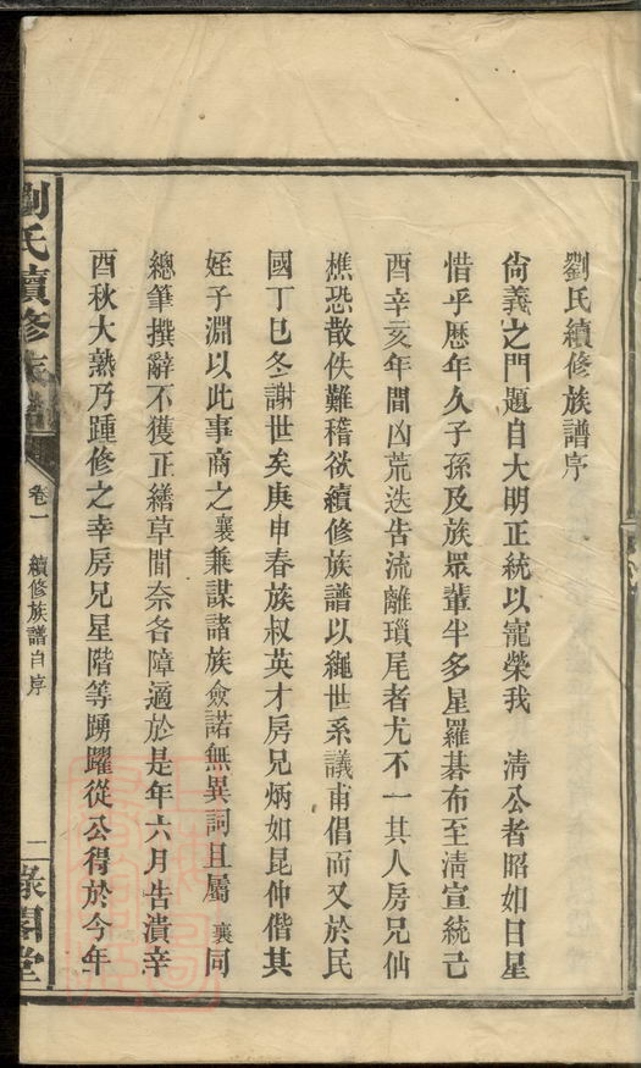 劉氏續修族譜序
尙義之門題自大明正統以寵榮我　淸公者昭如日星
惜乎歷年久子孫及族眾輩半多星羅碁布至淸宣統己
酉辛亥年間凶荒迭告流離瑣尾者尤不一其人房兄仙
樵恐散佚難稽欲續修族譜以繩世系議甫倡而又於民
國丁巳冬謝世矣庚申春族叔英才房兄炳如昆仲偕其
姪子淵以此事商之襄兼謀諸族僉諾無異詞且屬襄同
總筆撰辭不獲正繕草間奈各障適於是年六月告潰辛
酉秋大熟乃踵修之幸房兄星階等踴躍從公得於今年
劉氏續修族譜
卷一
續修族譜自序
二
祿閣堂